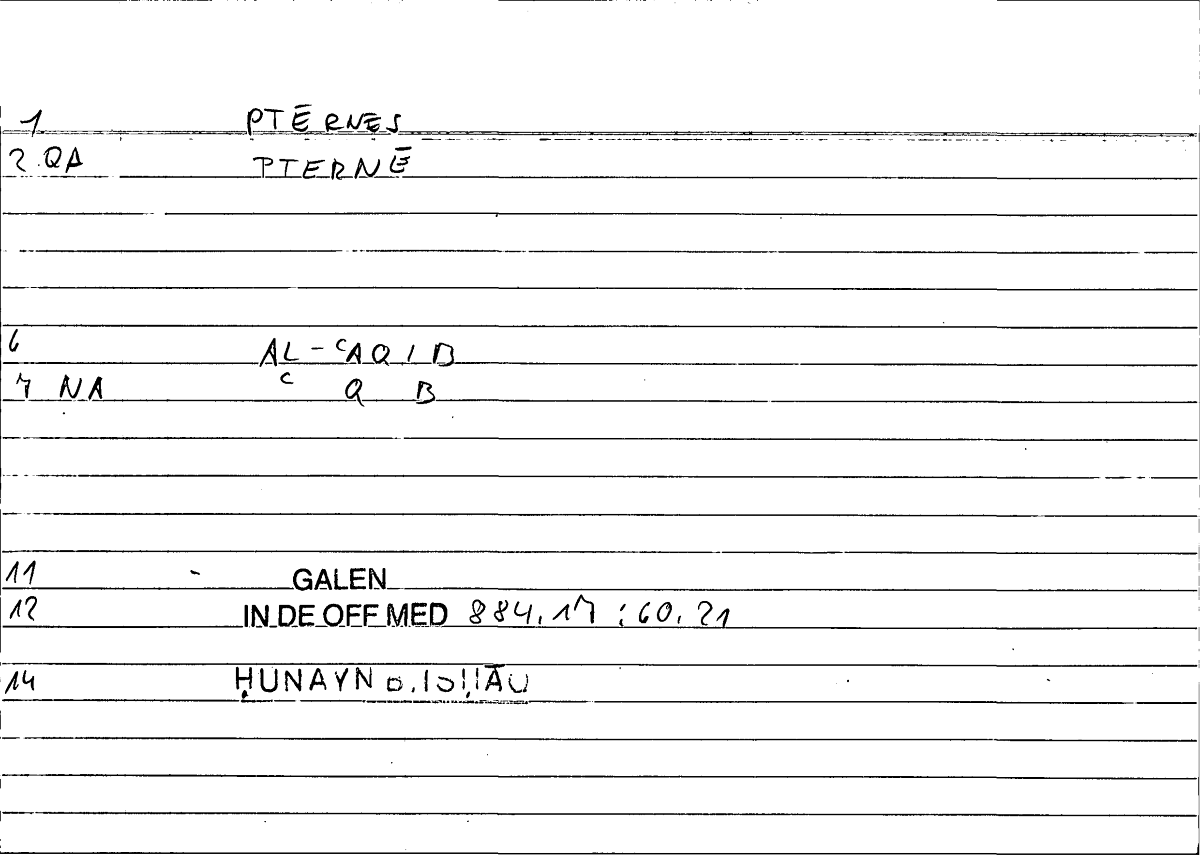 1 PTĒRNĒS
2 QA PTERNĒ
6 AL-ʿAQIB
7 NA ʿ Q B
11 - GALEN
12 IN DE OFF MED 884,17 : 60,21
14 ḤUNAYN b. Isḥāq